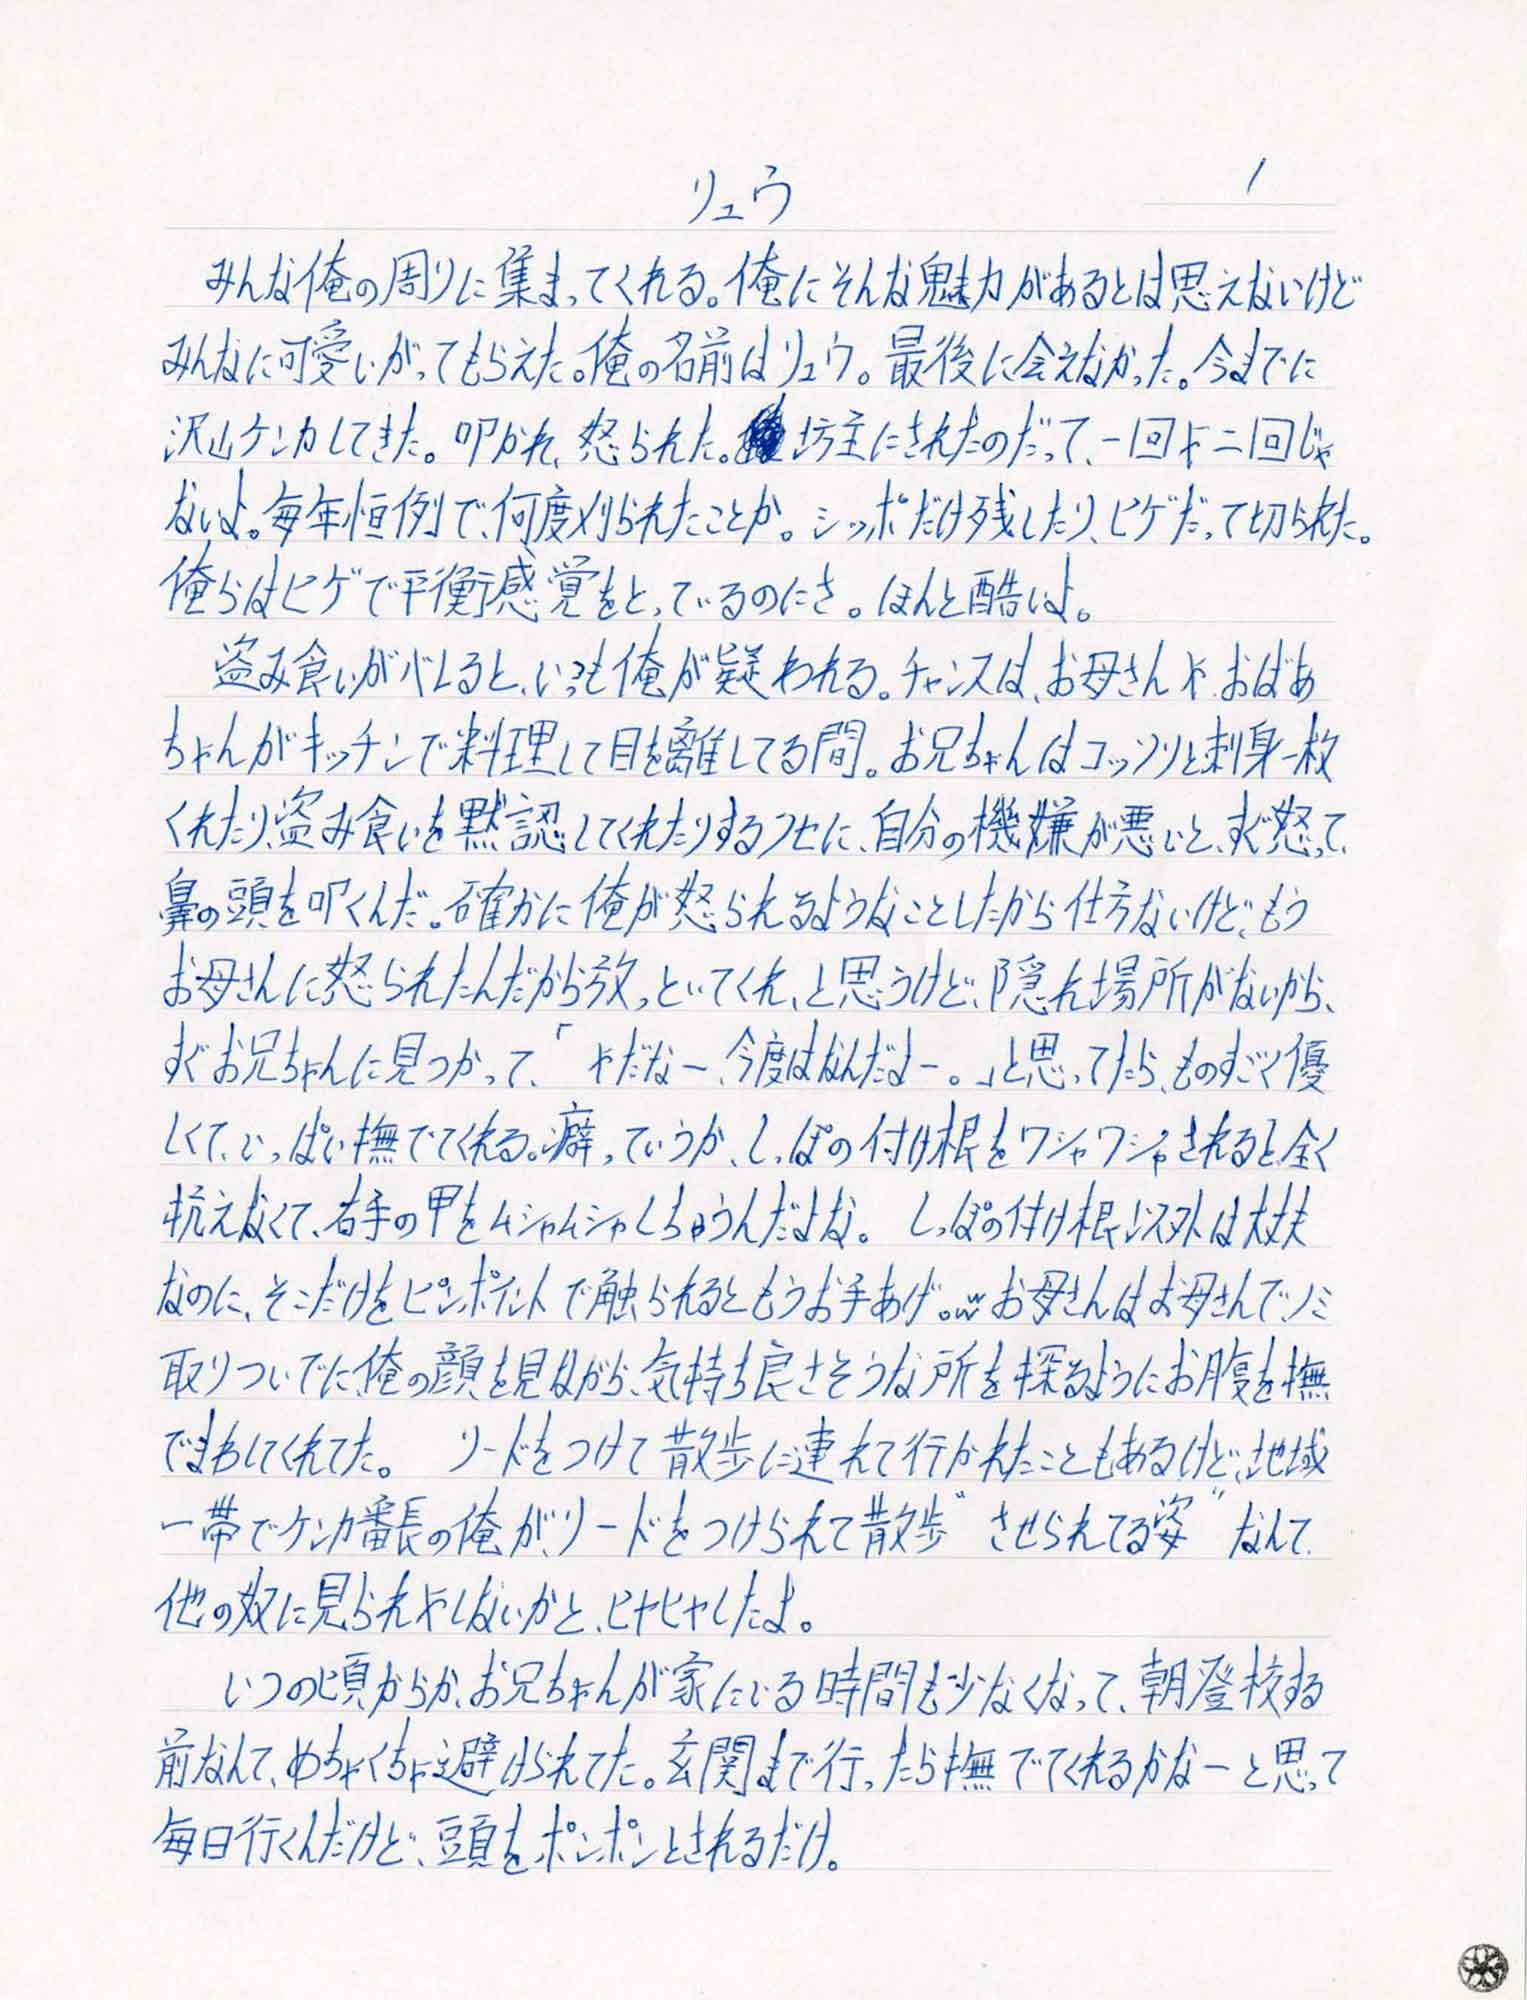 リュウ
1
みんな俺の周りに集まってくれる。俺にそんな魅力があるとは思えないけど
みんなに可愛いがってもらえた。俺の名前はリュウ。最後に会えなかった。今までに
沢山ケンカしてきた。叩かれ、怒られた。坊主にされたのだって、一回や二回じゃ
ないよ。毎年恒例で、何度刈られたことか。シッポだけ残したり、ヒゲだって切られた。
俺らはヒゲで平衡感覚をとっているのにさ。ほんと酷いよ。
盗み食いがバレると、いつも俺が疑われる。チャンスは、お母さんや、おばあ
ちゃんがキッチンで料理して目を離してる間。お兄ちゃんはコッソリと刺身一枚
くれたり、盗み食いを黙認してくれたりするクセに、自分の機嫌が悪いと、すぐ怒って、
鼻の頭を叩くんだ。確かに俺が怒られるようなことしたから仕方ないけど、もう
お母さんに怒られたんだから放っといてくれ、と思うけど、隠れ場所がないから、
すぐお兄ちゃんに見つかって、「やだなー、今度はなんだよー。」と思ってたら、ものすごく優
しくて、いっぱい撫でてくれる。癖っていうか、しっぽの付け根をワシャワシャされると、全く
抗えなくて、右手の甲をムシャムシャしちゃうんだよな。しっぽの付け根以外は大丈夫
なのに、そこだけをピンポイントで触られるともうお手あげ。ww お母さんはお母さんで、ノミ
取りついでに、俺の顔を見ながら、気持ち良さそうな所を探るようにお腹を撫
でまわしてくれてた。 リードをつけて散歩に連れて行かれたこともあるけど、地域
一帯でケンカ番長の俺が、リードをつけられて散歩"させられてる姿"なんて、
他の奴に見られやしないかと、ヒヤヒヤしたよ。
いつの頃からか、お兄ちゃんが家にいる時間も少なくなって、朝登校する
前なんて、めちゃくちゃ避けられてた。玄関まで行ったら撫でてくれるかなーと思って
毎日行くんだけど、頭をポンポンとされるだけ。